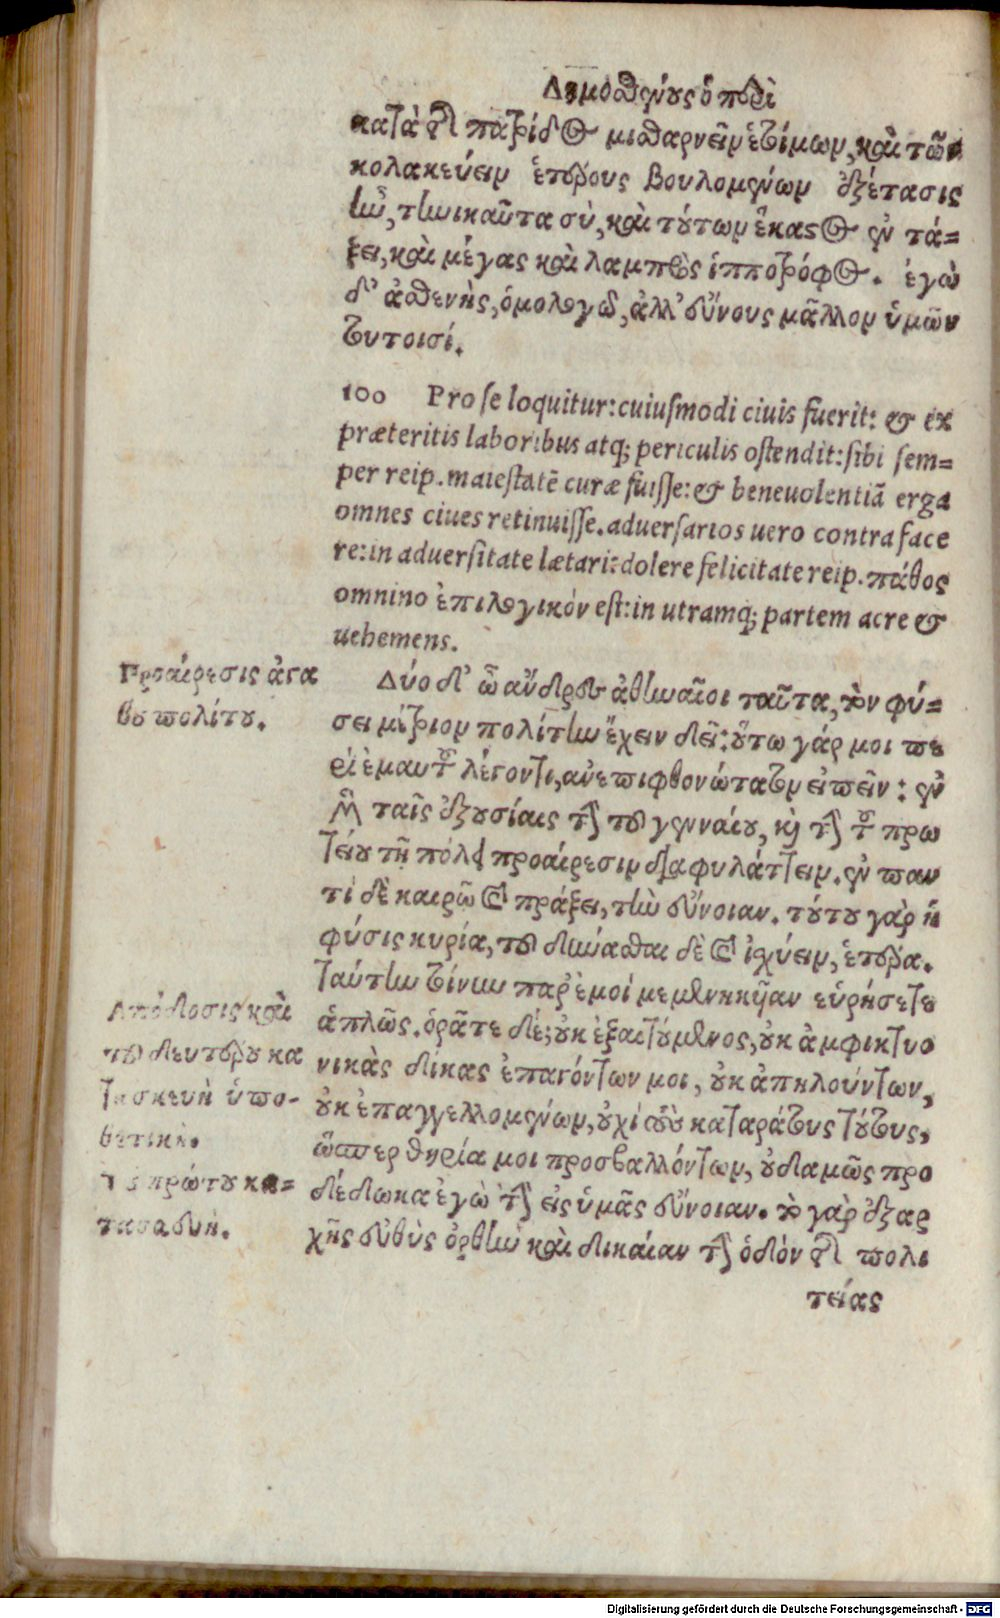 Δημοσθένους ὁ περὶ
κατὰ τῆς πατρίδος μισθαρνεῖν ἑτοίμων, καὶ τῶν
κολακεύειν ἑτέρους βουλομένων ἐξέτασις
ἦν, τηνικαῦτα σὺ, καὶ τούτων ἕκαστος ἐν τά=
ξει, καὶ μέγας καὶ λαμπρὸς ἱπποτρόφος. ἐγὼ
δ' ἀσθενὴς, ὁμολογῶ, ἀλλ' εὔνους μᾶλλον ὑμῶν
τουτοισί.
100 Pro se loquitur: cuiuſmodi ciuis fuerit: & ex
præteritis laboribus atq; periculis oſtendit: ſibi ſem=
per reip. maieſtatē curæ fuiſſe: & beneuolentiā erga
omnes ciues retinuiſſe. aduerſarios uero contra face
re: in aduerſitate lætari: dolere felicitate reip. πάθος
omnino ἐπιλογικόν eſt: in utramq; partem acre &
uehemens.
Προαίρεσις ἀγα
θοῦ πολίτου.
Δύο δ' ὦ ἄνδρες ἀθηναῖοι ταῦτα, τὸν φύ=
σει μέτριον πολίτην ἔχειν δεῖ: οὕτω γάρ μοι πε
ρὶ ἐμαυτοῦ λέγοντι, ἀνεπιφθονώτατον εἰπεῖν: ἐν
μὲν ταῖς ἐξουσίαις τὴν τοῦ γενναίου, καὶ τὴν τοῦ πρω
τείου τῇ πόλει προαίρεσιν διαφυλάττειν. ἐν παν
τὶ δὲ καιρῷ καὶ πράξει, τὴν εὔνοιαν. τούτου γὰρ ἡ
φύσις κυρία, τοῦ δύνασθαι δὲ καὶ ἰσχύειν, ἑτέρα.
ταύτην τοίνυν παρ' ἐμοὶ μεμενηκυῖαν εὑρήσετε
ἁπλῶς. ὁρᾶτε δέ; οὐκ ἐξαιτούμενος, οὐκ ἀμφικτυο
νικὰς δίκας ἐπαγόντων μοι, οὐκ ἀπειλούντων,
οὐκ ἐπαγγελλομένων, οὐχὶ τοὺς καταράτους τούτους,
ὥσπερ θηρία μοι προσβαλλόντων, οὐδαμῶς προ
δέδωκα ἐγὼ τὴν εἰς ὑμᾶς εὔνοιαν. τὸ γὰρ ἐξαρ
χῆς εὐθὺς ὀρθὴν καὶ δικαίαν τὴν ὁδὸν τῆς πολι
τείας
Ἀπόδοσις καὶ
τοῦ δευτέρου κα
τασκευὴ ὑπο-
θετική.
τοῦ πρώτου κα=
τασκευή.
Digitalisierung gefördert durch die Deutsche Forschungsgemeinschaft - DFG